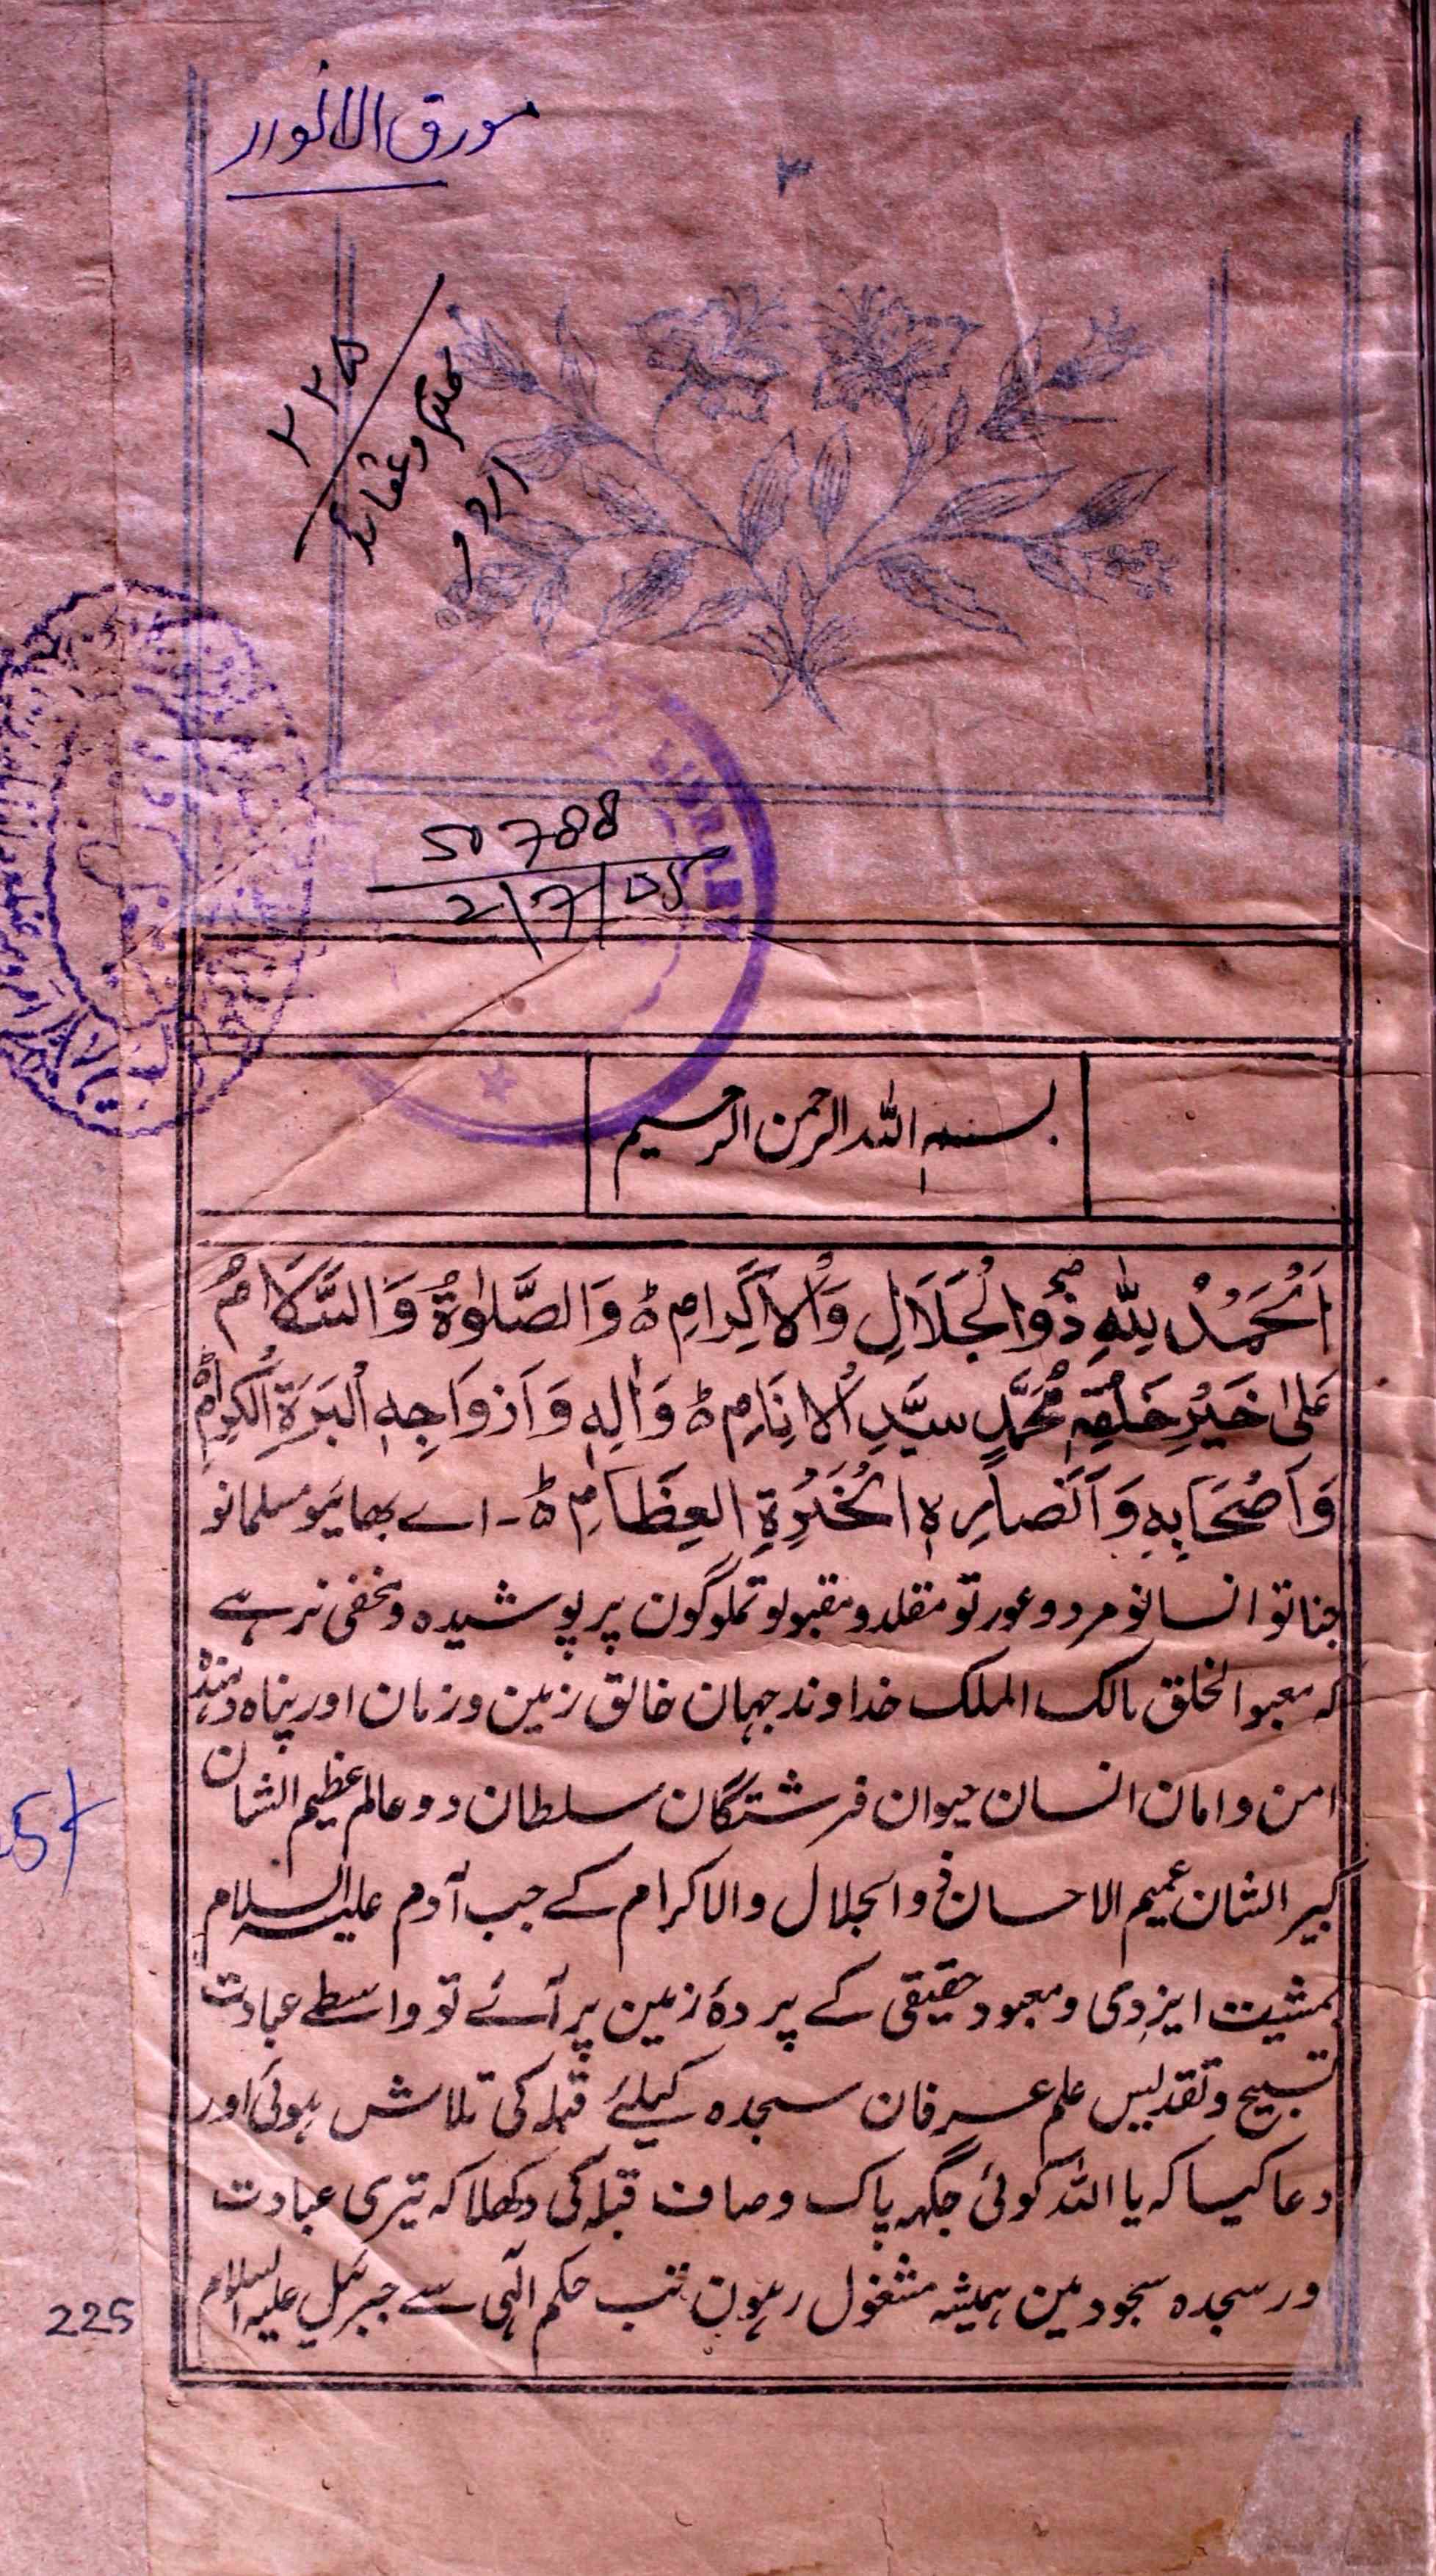 مورق الانوار
۳
۲۲۵
کلام و عقائد
اردو
LIBRARY
50788
2/7/05
بسم اللہ الرحمن الرحیم
اَلْحَمْدُ لِلّٰهِ ذُو الْجَلَالِ وَالْاِكْرَامِ ۵ وَالصَّلٰوةُ وَالسَّلَامُ
عَلٰى خَيْرِ خَلْقِهٖ مُحَمَّدٍ سَيِّدِ الْاَنَامِ ۵ وَاٰلِهٖ وَاَزْوَاجِهِ الْبَرَرَةِ الْكِرَامِ
وَاَصْحَابِهٖ وَاَنْصَارِهِ الْخَيْرَةِ الْعِظَامِ ۵۔ اے بھائیو مسلمانو
جناتو انسانو مرد و عورتو مقلد و مقبولو تملوگون پر پوشیدہ و مخفی نرہے
کہ معبو الخلق مالک الملک خداوند جہان خالق زمین و زمان اور پناہ دہندہ
امن و امان انسان حیوان فرشتگان سلطان دو عالم عظیم الشان
کبیر الشان عمیم الاحسان ذو الجلال والاکرام کے جب آدم علیہ السلام
بمشیت ایزدی و معبود حقیقی کے پردۂ زمین پر آئے تو واسطے عبادت
تسبیح و تقدیس علم عرفان سجدہ کیلئے قبلہ کی تلاش ہوئی اور
دعا کیا کہ یا اللہ کوئی جگہہ پاک و صاف قبلہ کی دکھلا کہ تیری عبادت
ور سجدہ سجود مین ہمیشہ مشغول رہون تب حکم الٰہی سے جبرئیل علیہ السلام
225